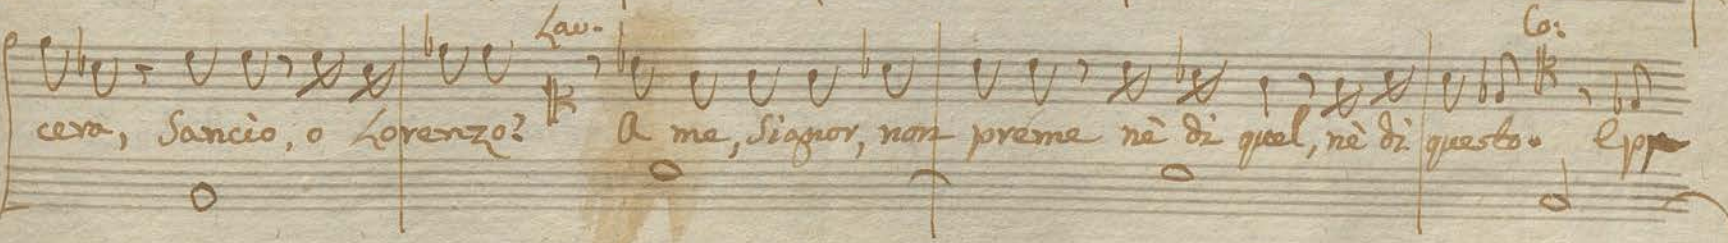 Lau. Co:
cera, Sancio, o Lorenzo? A me, Signor, non preme nè di quel, nè di questo. Epp